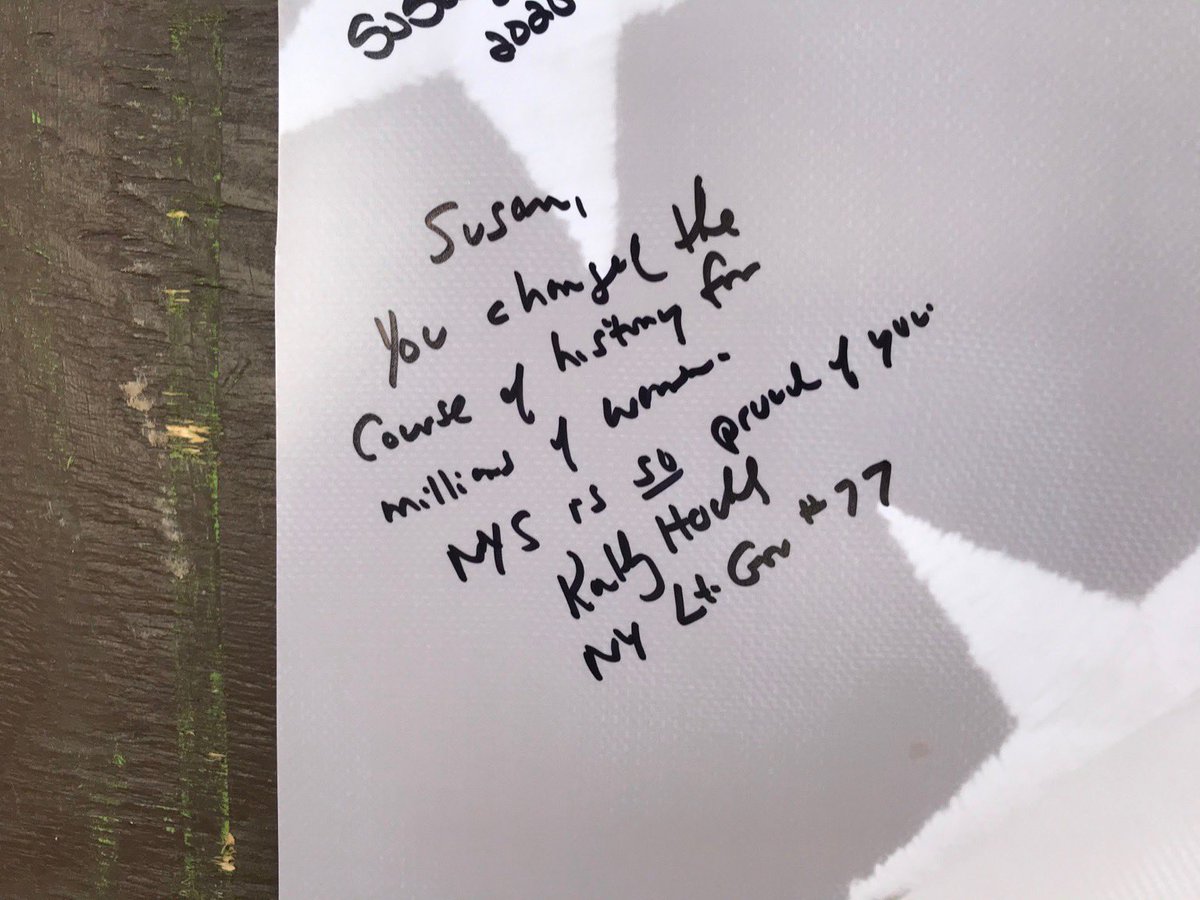 2020
Susan,
You changed the
Course of history for
millions of women.
NYS is so proud of you.
Kathy Hochul
NY Lt. Gov #77